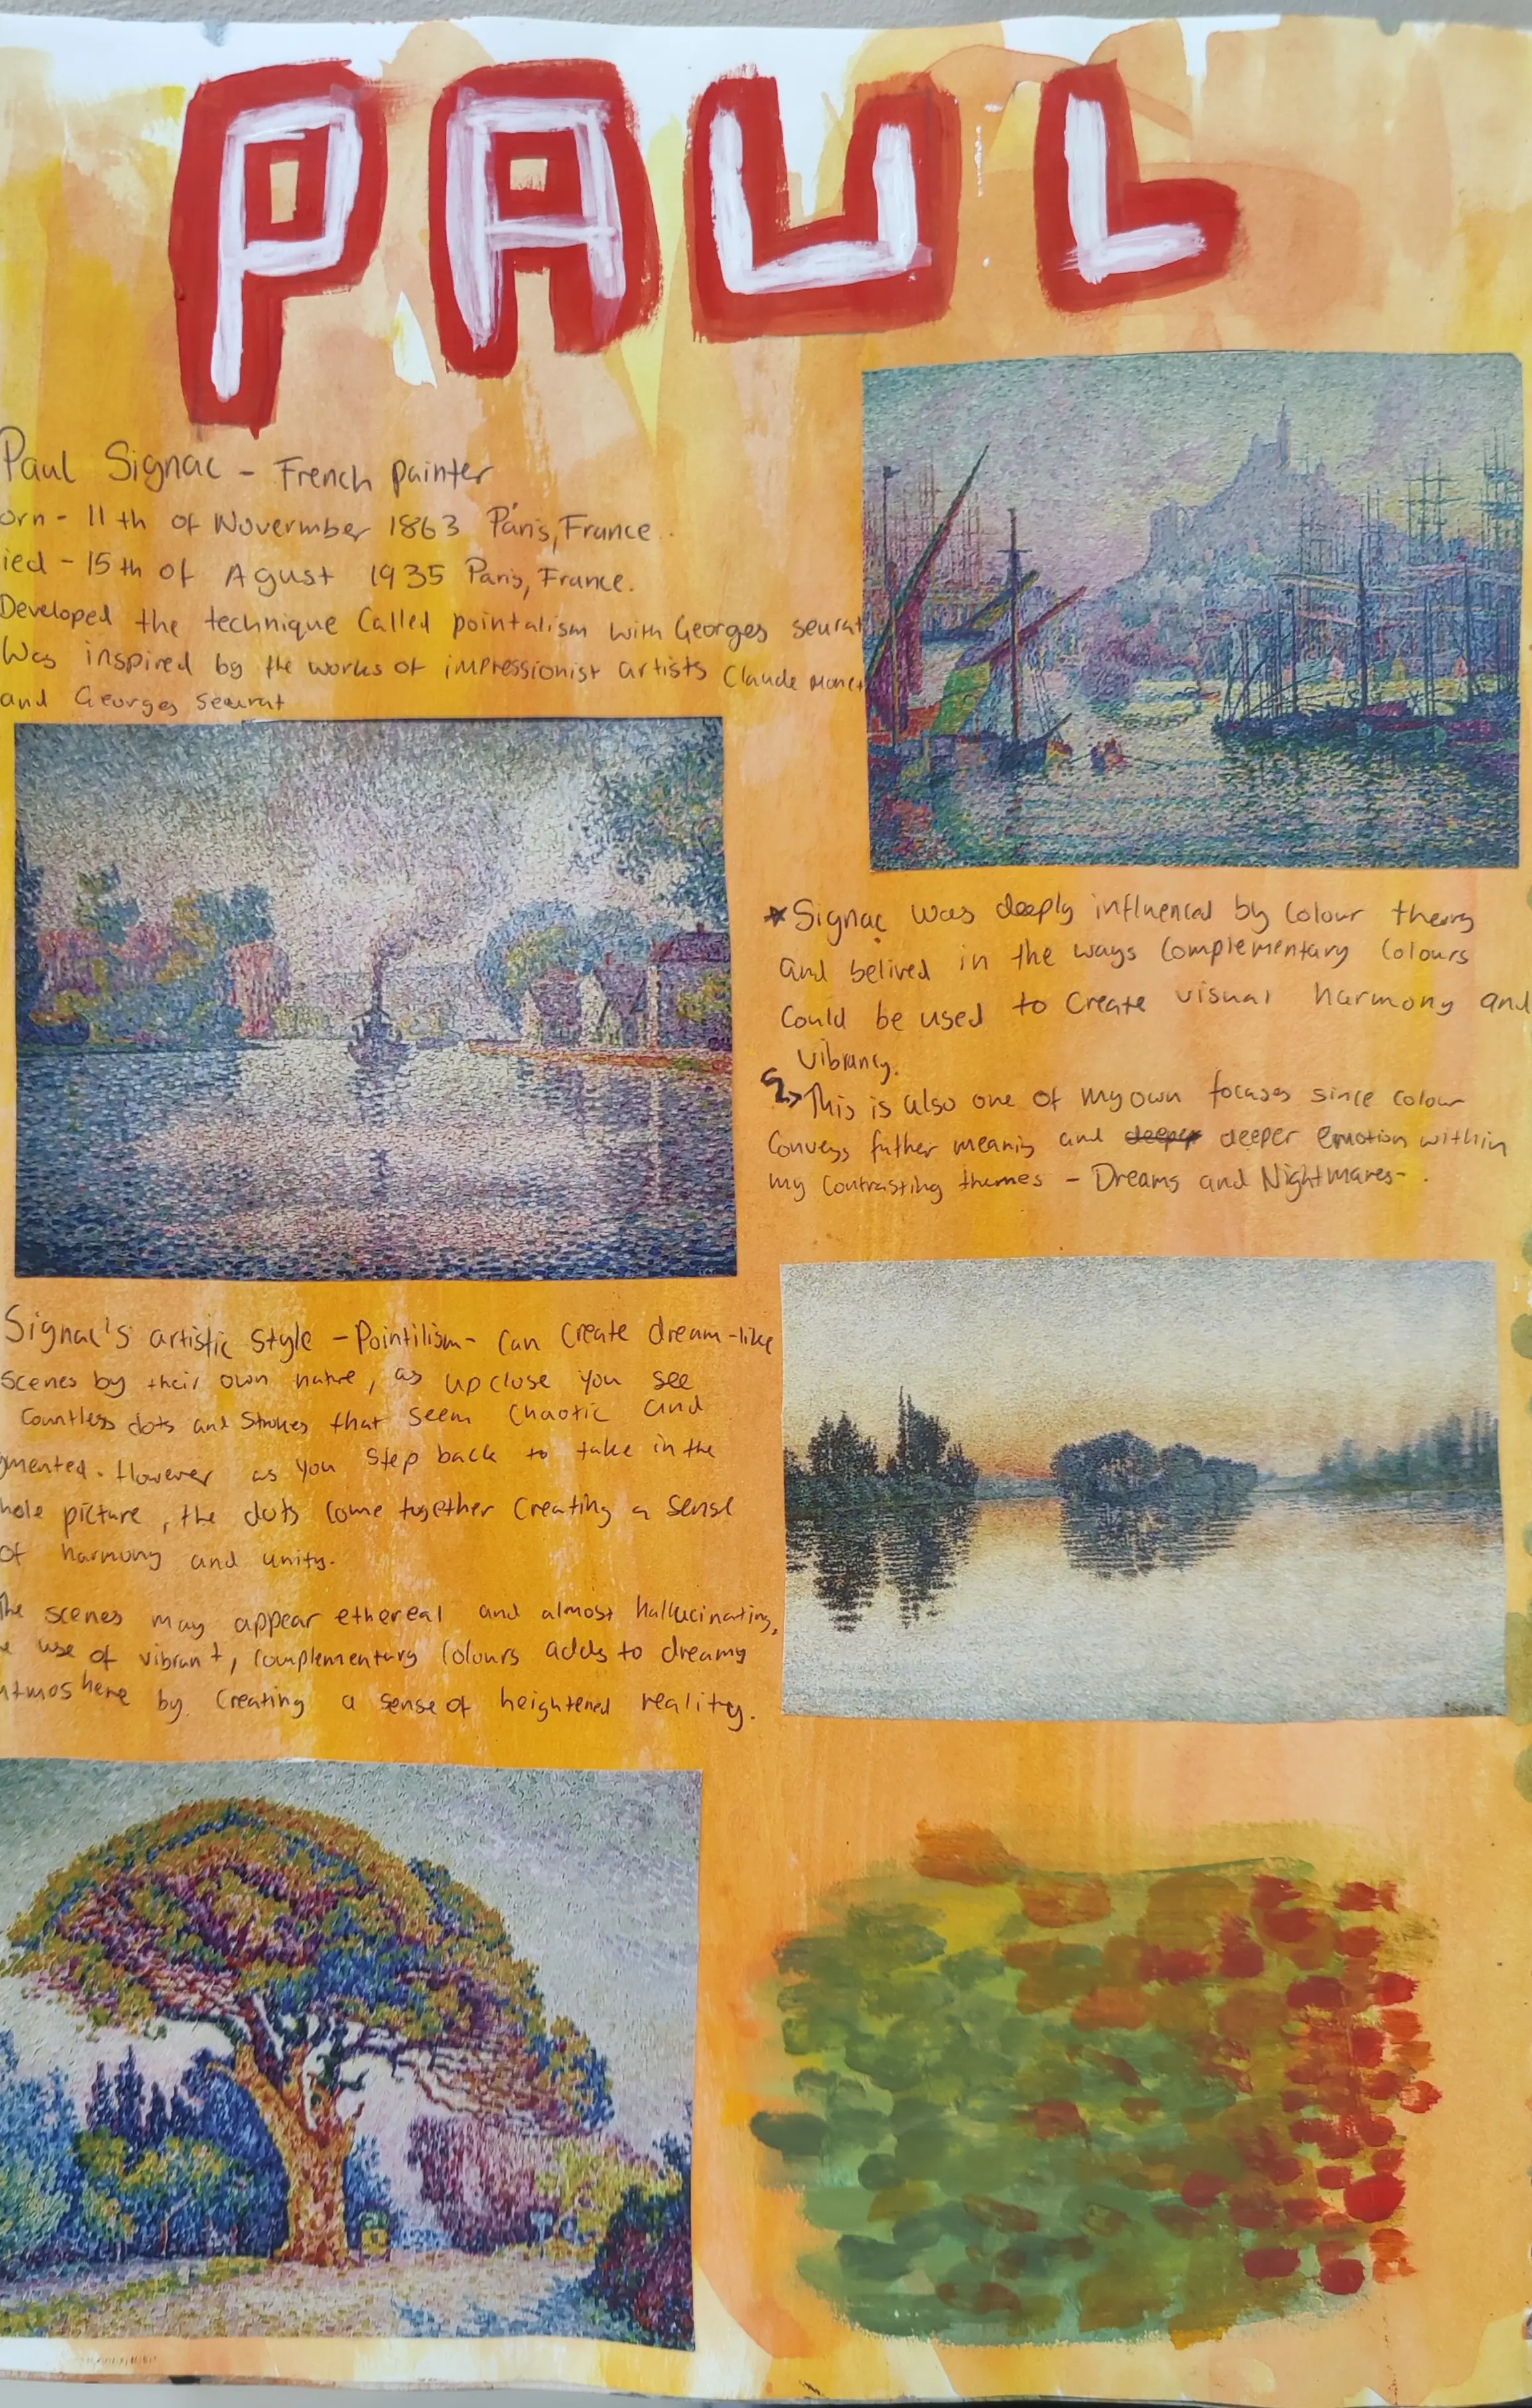 PAUL
Paul Signac - French painter
orn - 11th of Novermber 1863 Paris, France.
ied - 15th of Agust 1935 Paris, France.
Developed the technique Called pointalism with Georges seurat
Was inspired by the works of impressionist artists Claude Monet
and Georges seurat
★ Signac was deeply influenced by Colour theory
and belived in the ways Complementary Colours
Could be used to Create visual harmony and
vibrancy.
↳ This is also one of my own focuses since colour
Conveys futher meanig and deeper deeper emotion within
my Contrasting themes - Dreams and Nightmares-.
Signac's artistic style - Pointilism - Can Create dream-like
scenes by their own nature, as up close you see
Countless dots and Strokes that seem Chaotic and
gmented. However as you Step back to take in the
hole picture, the dots come together Creating a sense
of harmony and unity.
The scenes may appear ethereal and almost hallucinating,
e use of vibrant, Complementary Colours adds to dreamy
atmoshere by Creating a sense of heightened reality.